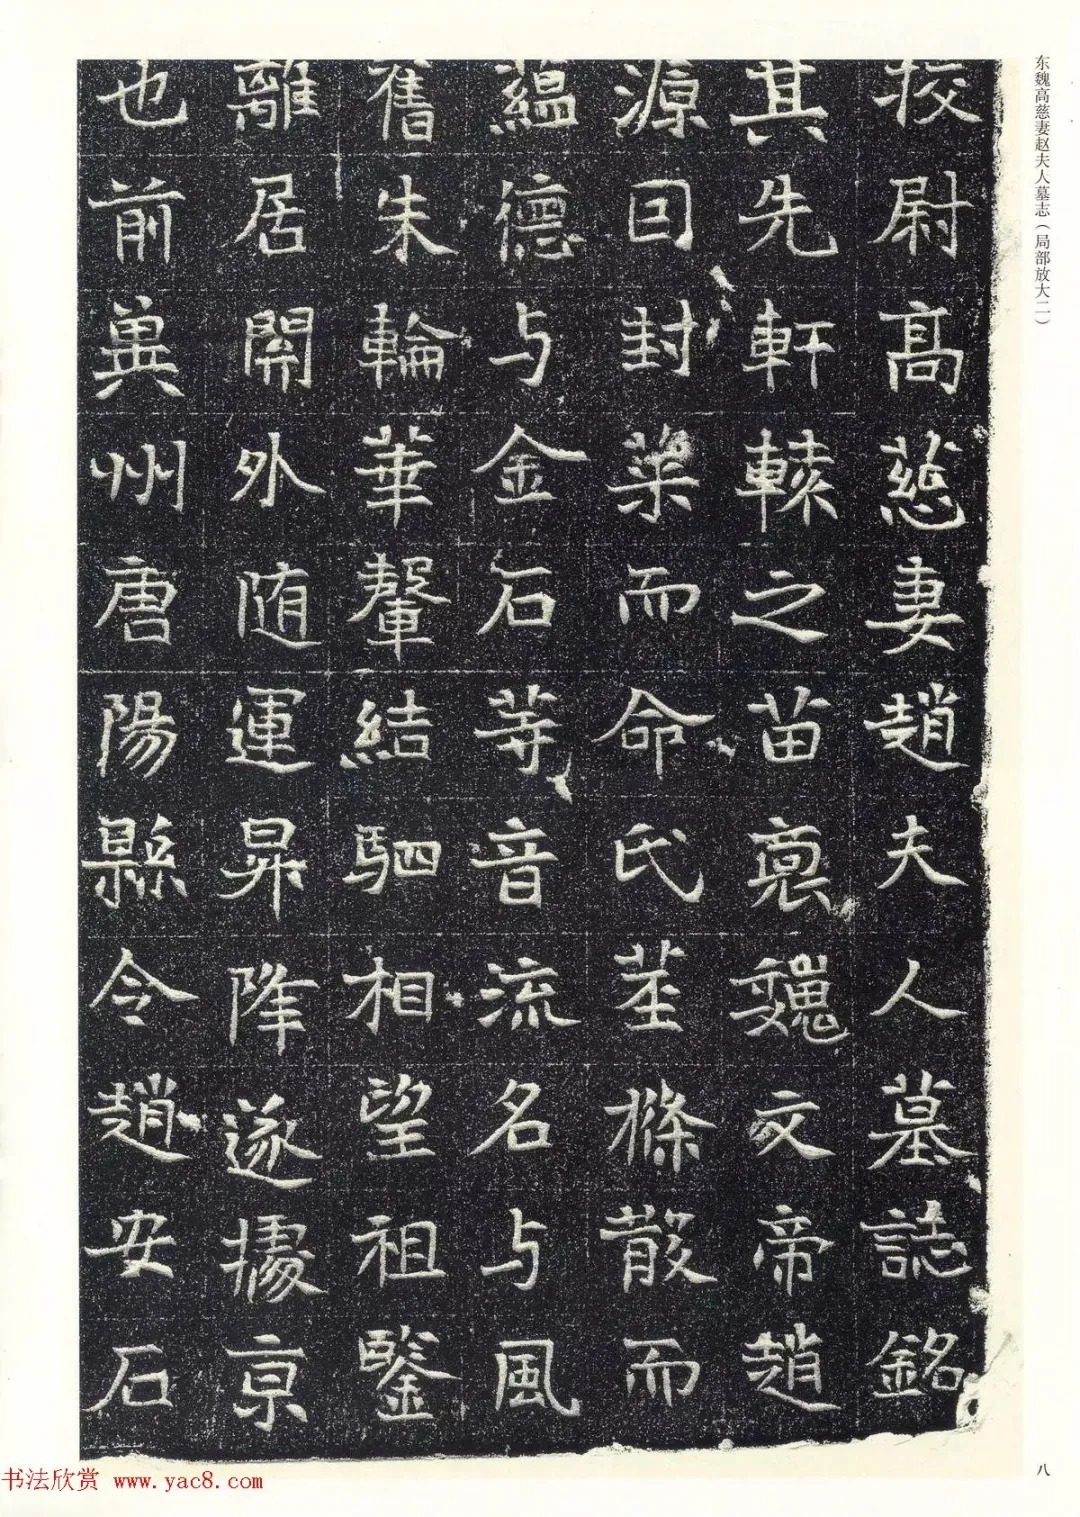 东魏高慈妻赵夫人墓志（局部放大二）
校尉高慈妻趙夫人墓誌銘
其先軒轅之苗裔魏文帝趙
源曰封葉而命氏莖條散而
蘊德与金石等音流名与風
舊朱輪華輦結駟相望祖鑒
離居關外随運昇降遂據京
也前冀州唐陽縣令趙安石
八
书法欣赏 www.yac8.com